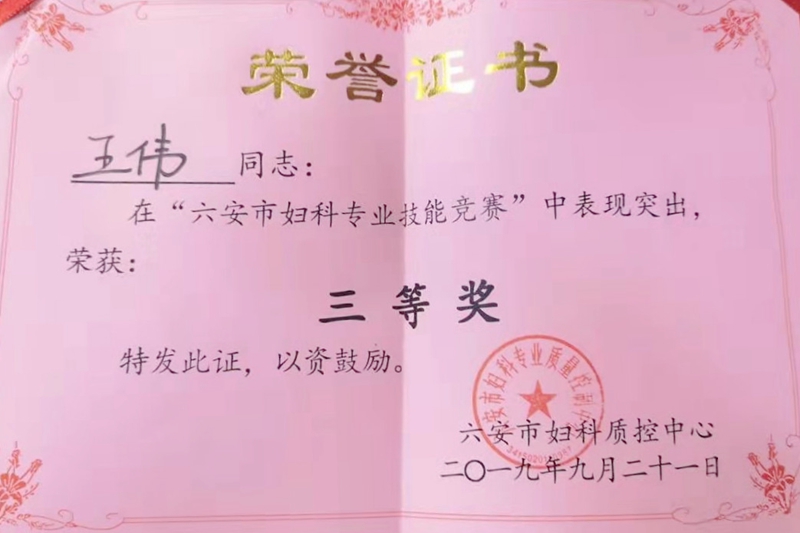 荣誉证书
王伟 同志：
在“六安市妇科专业技能竞赛”中表现突出，
荣获：
三等奖
特发此证，以资鼓励。
六安市妇科专业质量控制
六安市妇科质控中心
二〇一九年九月二十一日